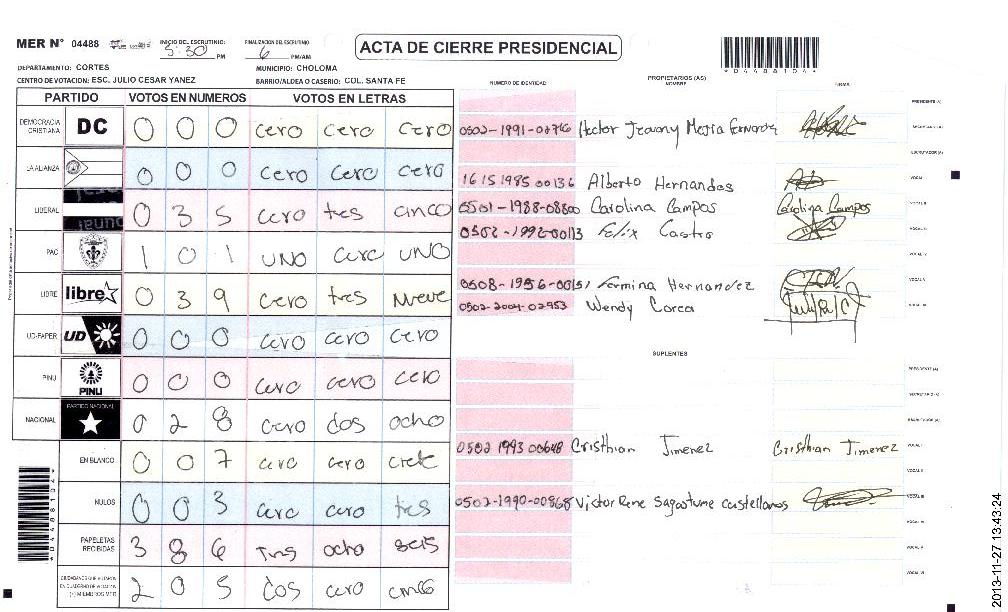 MER N° 04488
INICIO DEL ESCRUTINIO: 5:30 PM
FINALIZACION DEL ESCRUTINIO 6 PM/AM
ACTA DE CIERRE PRESIDENCIAL
*04488104*
DEPARTAMENTO: CORTES
MUNICIPIO: CHOLOMA
CENTRO DE VOTACION: ESC. JULIO CESAR YANEZ
BARRIO/ALDEA O CASERIO: COL. SANTA FE
PARTIDO VOTOS EN NUMEROS VOTOS EN LETRAS
DEMOCRACIA CRISTIANA DC 0 0 0 cero cero cero
LA ALIANZA 0 0 0 cero cero cero
LIBERAL 0 3 5 cero tres cinco
PAC 1 0 1 UNO cero UNO
LIBRE libre 0 3 9 cero tres Nueve
UD-FAPER UD 0 0 0 cero cero cero
PINU PINU 0 0 0 cero cero cero
NACIONAL PARTIDO NACIONAL 0 2 8 cero dos ocho
EN BLANCO 0 0 7 cero cero
NULOS 0 0 3 cero cero tres
PAPELETAS RECIBIDAS 3 8 6 Tres ocho seis
CIUDADANOS QUE VOTARON EN CUADERNO DE VOTACION (+) MIEMBROS MER 2 0 5 dos cero cinco
NUMERO DE IDENTIDAD
PROPIETARIOS (AS)
NOMBRE
FIRMA
PRESIDENTE (A)
0502-1991-02716 Hector Jeovany Mejia
SECRETARIO (A)
ESCRUTADOR (A)
1615 1985 00136 Alberto Hernandes
VOCAL I
0501-1988-08800 Carolina Campos Carolina Campos
VOCAL II
0502-1992-00113 Felix Castro
VOCAL III
VOCAL IV
0508-1956-00151 Fermina Hernandez
VOCAL V
0502-2004-02953 Wendy Corea
VOCAL VI
SUPLENTES
PRESIDENTE (A)
SECRETARIO (A)
ESCRUTADOR (A)
0502 1993 00648 Cristhian Jimenez Cristhian Jimenez
VOCAL I
VOCAL II
0502-1990-00868 Victor Rene Sagastume Castellanos
VOCAL III
VOCAL IV
VOCAL V
VOCAL VI
*04488104*
2013-11-27 13:43:24